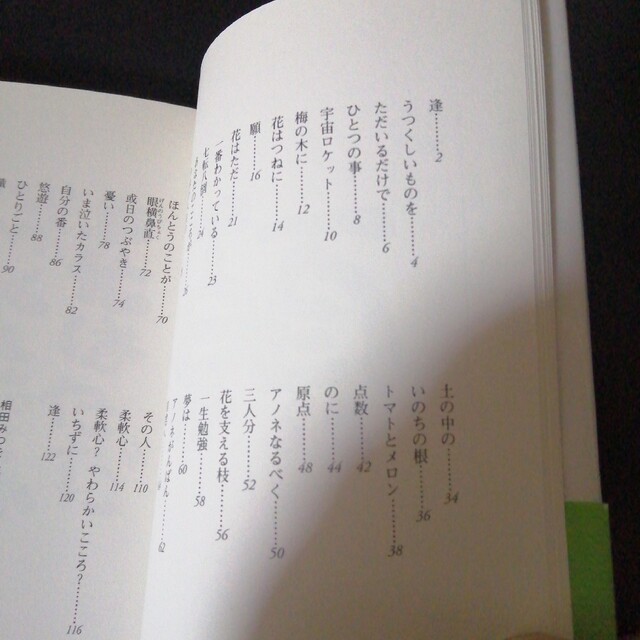 逢……2
うつくしいものを……4
ただいるだけで……6
ひとつの事……8
宇宙ロケット……10
梅の木に……12
花はつねに……14
願……16
花はただ……21
一番わかっている……23
七転八倒……24
土の中の……34
いのちの根……36
トマトとメロン……38
点数……42
のに……44
原点……48
アノネなるべく……50
三人分……52
花を支える枝……56
一生勉強……58
夢は……60
アノネがんばん……62
ほんとうのことが……70
眼横鼻直……72
或日のつぶやき……74
憂い……78
いま泣いたカラス……82
自分の番……86
悠遊……88
ひとりごと……90
その人……110
柔軟心……114
柔軟心? やわらかいこころ?……116
いちずに……120
逢……122
相田みつを